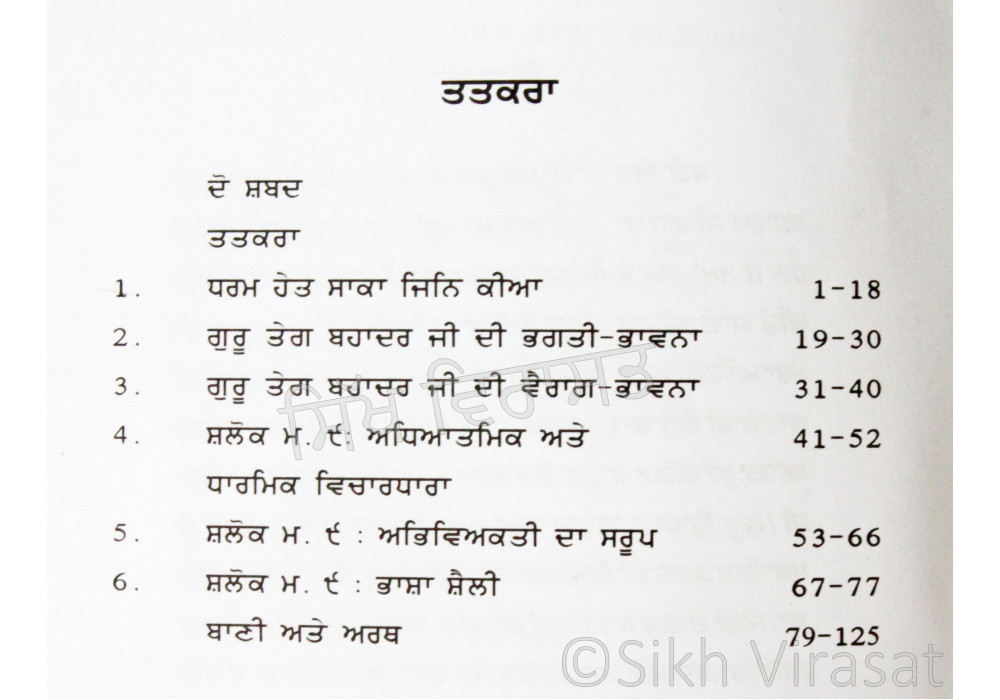 ਤਤਕਰਾ
ਦੋ ਸ਼ਬਦ
ਤਤਕਰਾ
1. ਧਰਮ ਹੇਤ ਸਾਕਾ ਜਿਨਿ ਕੀਆ 1-18
2. ਗੁਰੂ ਤੇਗ ਬਹਾਦਰ ਜੀ ਦੀ ਭਗਤੀ-ਭਾਵਨਾ 19-30
3. ਗੁਰੂ ਤੇਗ ਬਹਾਦਰ ਜੀ ਦੀ ਵੈਰਾਗ-ਭਾਵਨਾ 31-40
ਸਿਖ ਵਿਰਾਸਤ
4. ਸ਼ਲੋਕ ਮ. ੯: ਅਧਿਆਤਮਿਕ ਅਤੇ 41-52
ਧਾਰਮਿਕ ਵਿਚਾਰਧਾਰਾ
5. ਸ਼ਲੋਕ ਮ. ੯ : ਅਭਿਵਿਅਕਤੀ ਦਾ ਸਰੂਪ 53-66
6. ਸ਼ਲੋਕ ਮ. ੯ : ਭਾਸ਼ਾ ਸ਼ੈਲੀ 67-77
ਬਾਣੀ ਅਤੇ ਅਰਥ 79-125
©Sikh Virasat